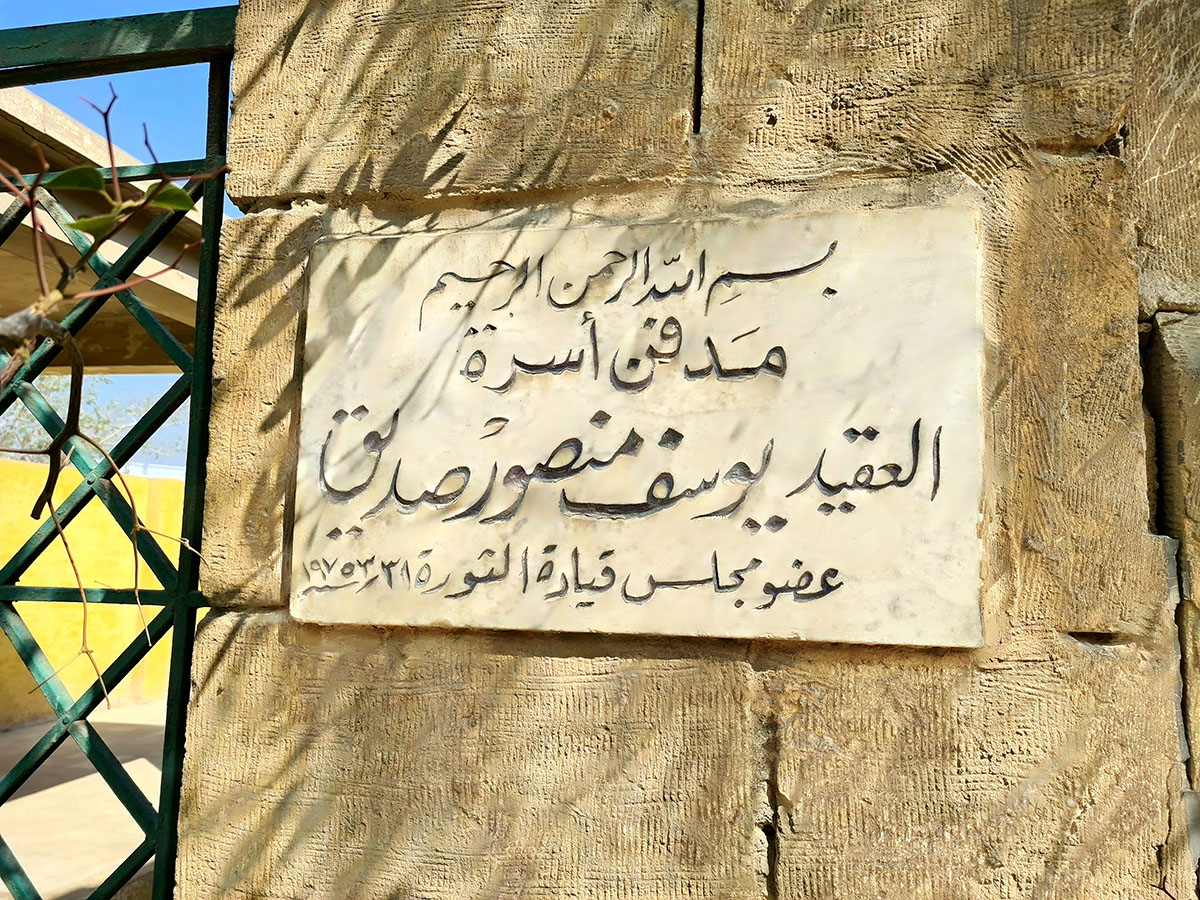 بسم الله الرحمن الرحيم
مدفن أسرة
العقيد يوسف منصور صديق
عضو مجلس قيادة الثورة ٣١/٣/١٩٧٥